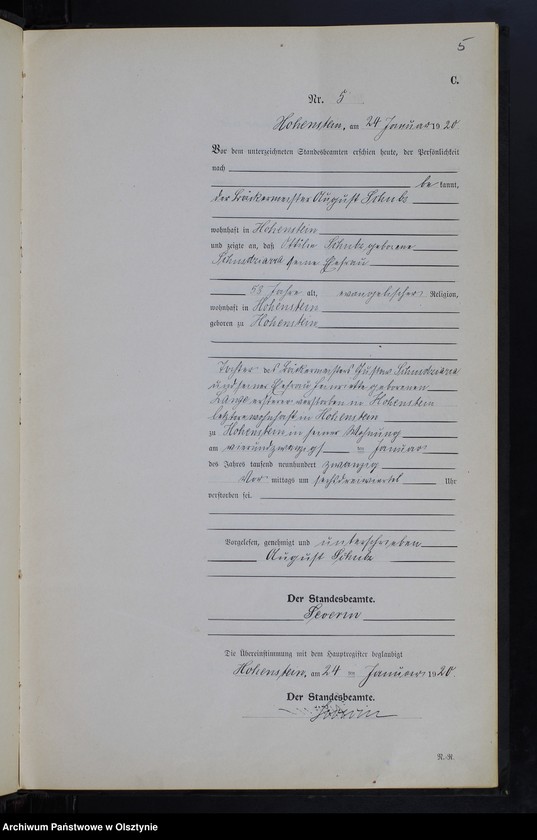 5
C.
Nr. 5
Hohenstein, am 24 Januar 1920
Vor dem unterzeichneten Standesbeamten erschien heute, der Persönlichkeit
nach
be kannt,
der Bäckermeister August
wohnhaft in Hohenstein
und zeigte an, daß Ottilie geborene
seine Ehefrau
Jahre alt, evangelischer Religion,
wohnhaft in Hohenstein
geboren zu Hohenstein
Tochter des Bäckermeisters Gustav
und seiner Ehefrau Henriette geborenen
ersterer verstorben in Hohenstein
letztere wohnhaft in Hohenstein
zu Hohenstein in seiner Wohnung
am vierundzwanzigsten Januar
des Jahres tausend neunhundert zwanzig
Vor mittags um sechsdreiviertel Uhr
verstorben sei.
Vorgelesen, genehmigt und unterschrieben
August
Der Standesbeamte.
Die Übereinstimmung mit dem Hauptregister beglaubigt
Hohenstein, am 24 Januar 1920.
Der Standesbeamte.
N.-R.
Archiwum Państwowe w Olsztynie